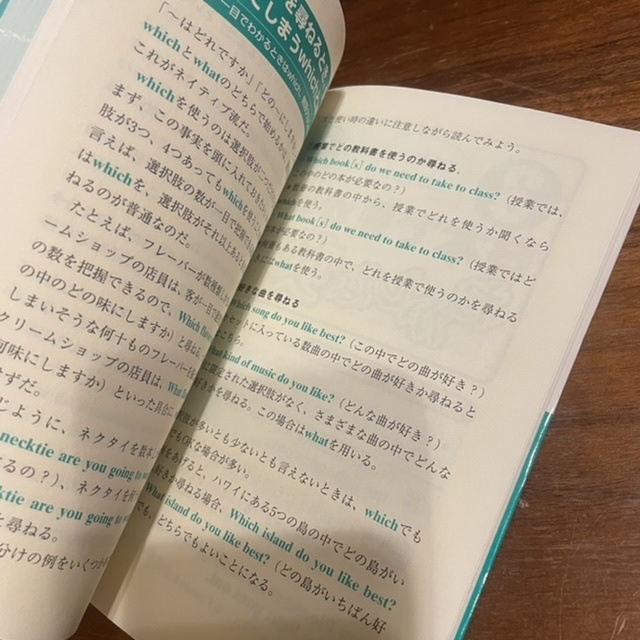 を尋ねるとき
てしまうwhich
一目でわかるときはwhich
「〜はどれですか」「どの〜にしますか
whichとwhatのどちらで始めるか
これがネイティブ流だ。
whichを使うのは選択肢が二つ
まず、この事実を頭に入れておきた
肢が3つ、4つあってもwhichを使
言えば、選択肢の数が一目で把握で
はwhichを、選択肢がそれ以上ある
ねるのが普通なのだ。
たとえば、フレーバーが数種類し
ームショップの店員は、客が一目で
の数を把握できるので、Which flavor
の中のどの味にしますか）と尋ね
しまいそうな何十ものフレーバー
クリームショップの店員は、What
何味にしますか）といった具合に
ずだ。
じように、ネクタイを数本
necktie are you going to
るの？）、ネクタイを
cktie are you going to
に尋ねる。
分けの例をいくつか
使い時の違いに注意しながら読んでみよう。
授業でどの教科書を使うのか尋ねる.
Which book[s] do we need to take to class?（授業では、
このどの本が必要なの？）
の教科書の中から、授業でどれを使うか聞くなら
whichを使う。
What book[s] do we need to take to class?（授業ではど
が必要なの？）
ある教科書の中で、どれを授業で使うのかを尋ねる
きにはwhatを使う。
好きな曲を尋ねる
Which song do you like best?（この中でどの曲が好き？）
セットに入っている数曲の中でどの曲が好きか尋ねると
こちら。
What kind of music do you like?（どんな曲が好き？）
に設定された選択肢がなく、さまざまな曲の中でどんな
好きかを尋ねる。この場合はwhatを用いる。
肢が多いとも少ないとも言えないときは、whichでも
でもOKな場合が多い。
例をあげると、ハワイにある5つの島の中でどの島がい
好きか尋ねる場合、Which island do you like best?
What island do you like best?（どの島がいちばん好
でも、どちらでもよいことになる。